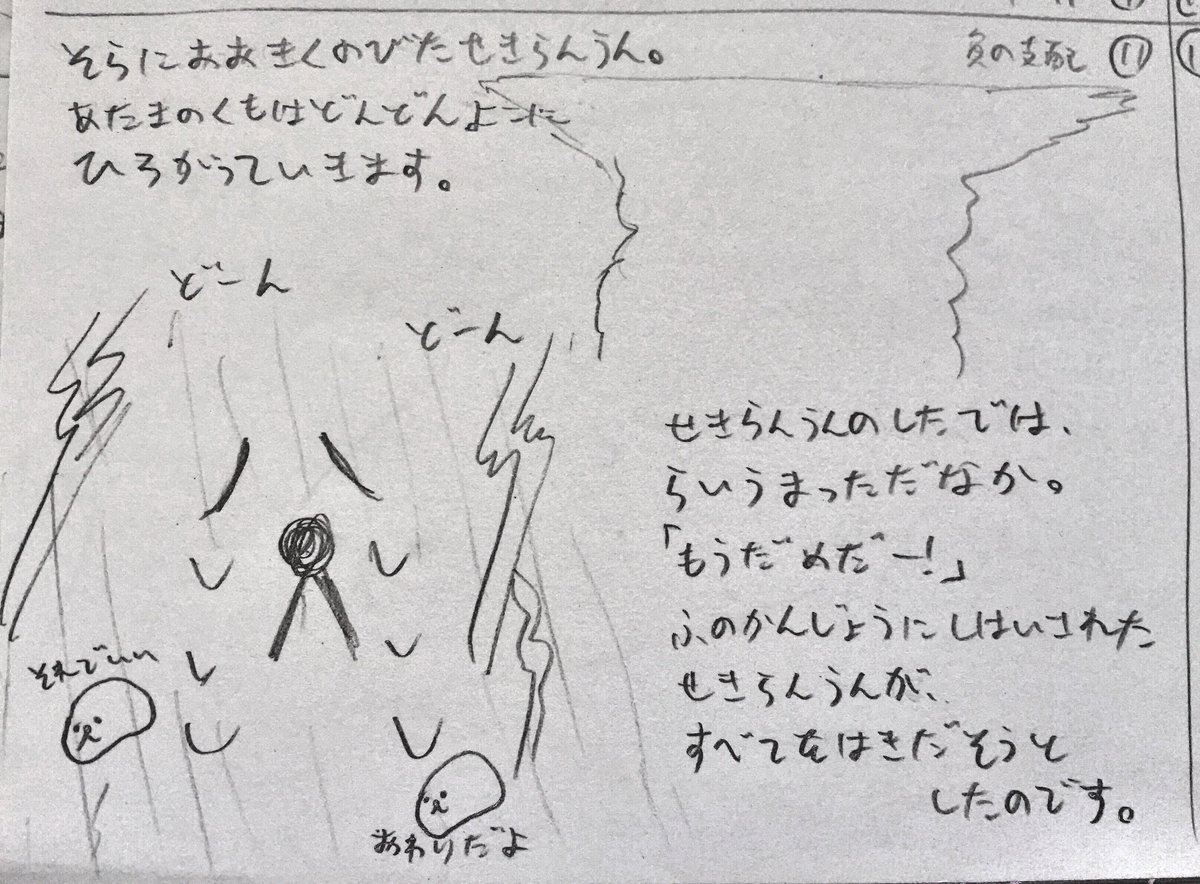 そらにおおきくのびたせきらんうん。
負の支配 ⑪
あたまのくもはどんどんよこに
ひろがっていきます。
どーん
どーん
せきらんうんのしたでは、
らいうまっただなか。
「もうだめだー!」
ふのかんじょうにしはいされた
せきらんうんが、
すべてをはきだそうと
したのです。
それでいい
おわりだよ